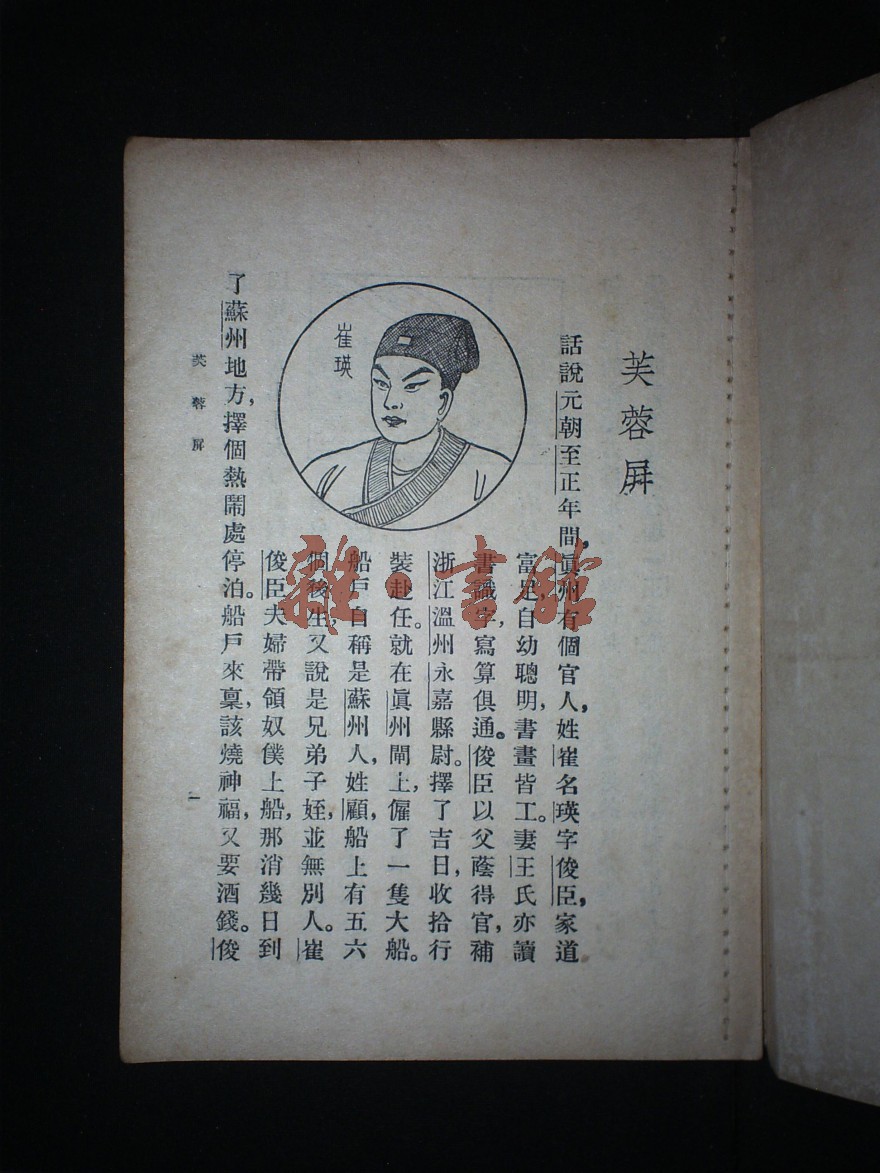 芙蓉屏
話說元朝至正年間，眞州有個官人，姓崔名瑛字俊臣，家道
富足，自幼聰明，書畫皆工。妻王氏亦讀
書識字，寫算俱通。俊臣以父蔭得官，補
浙江溫州永嘉縣尉。擇了吉日，收拾行
裝赴任。就在眞州閘上，僱了一隻大船。
船戶自稱是蘇州人，姓顧，船上有五六
個後生，又說是兄弟子姪，並無別人。崔
俊臣夫婦帶領奴僕上船，那消幾日到
了蘇州地方，擇個熱鬧處停泊。船戶來稟，該燒神福，又要酒錢。俊
崔瑛
芙蓉屏
一
雜·書館